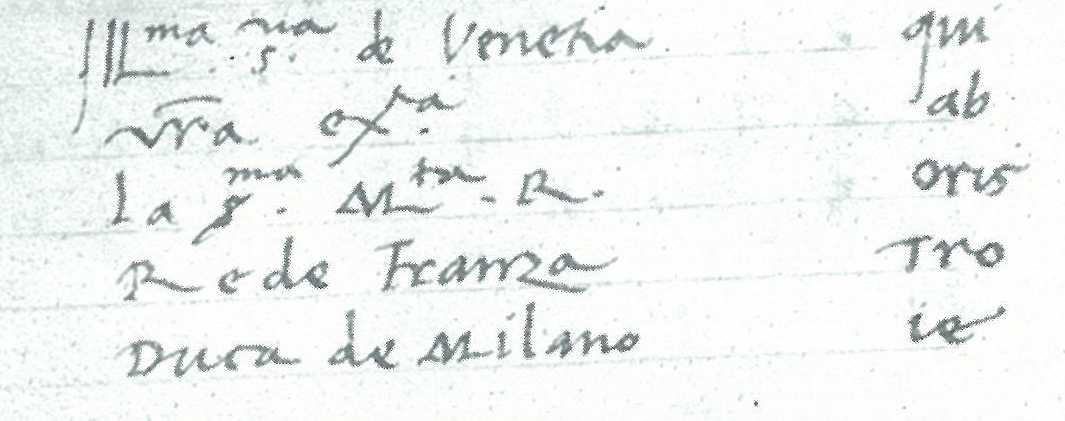 Ill.ma S.ria de Venetia qui
vra ex.tia ab
la s.ma M.ta R. oris
Re de Franza Tro
Duca de Milano ie